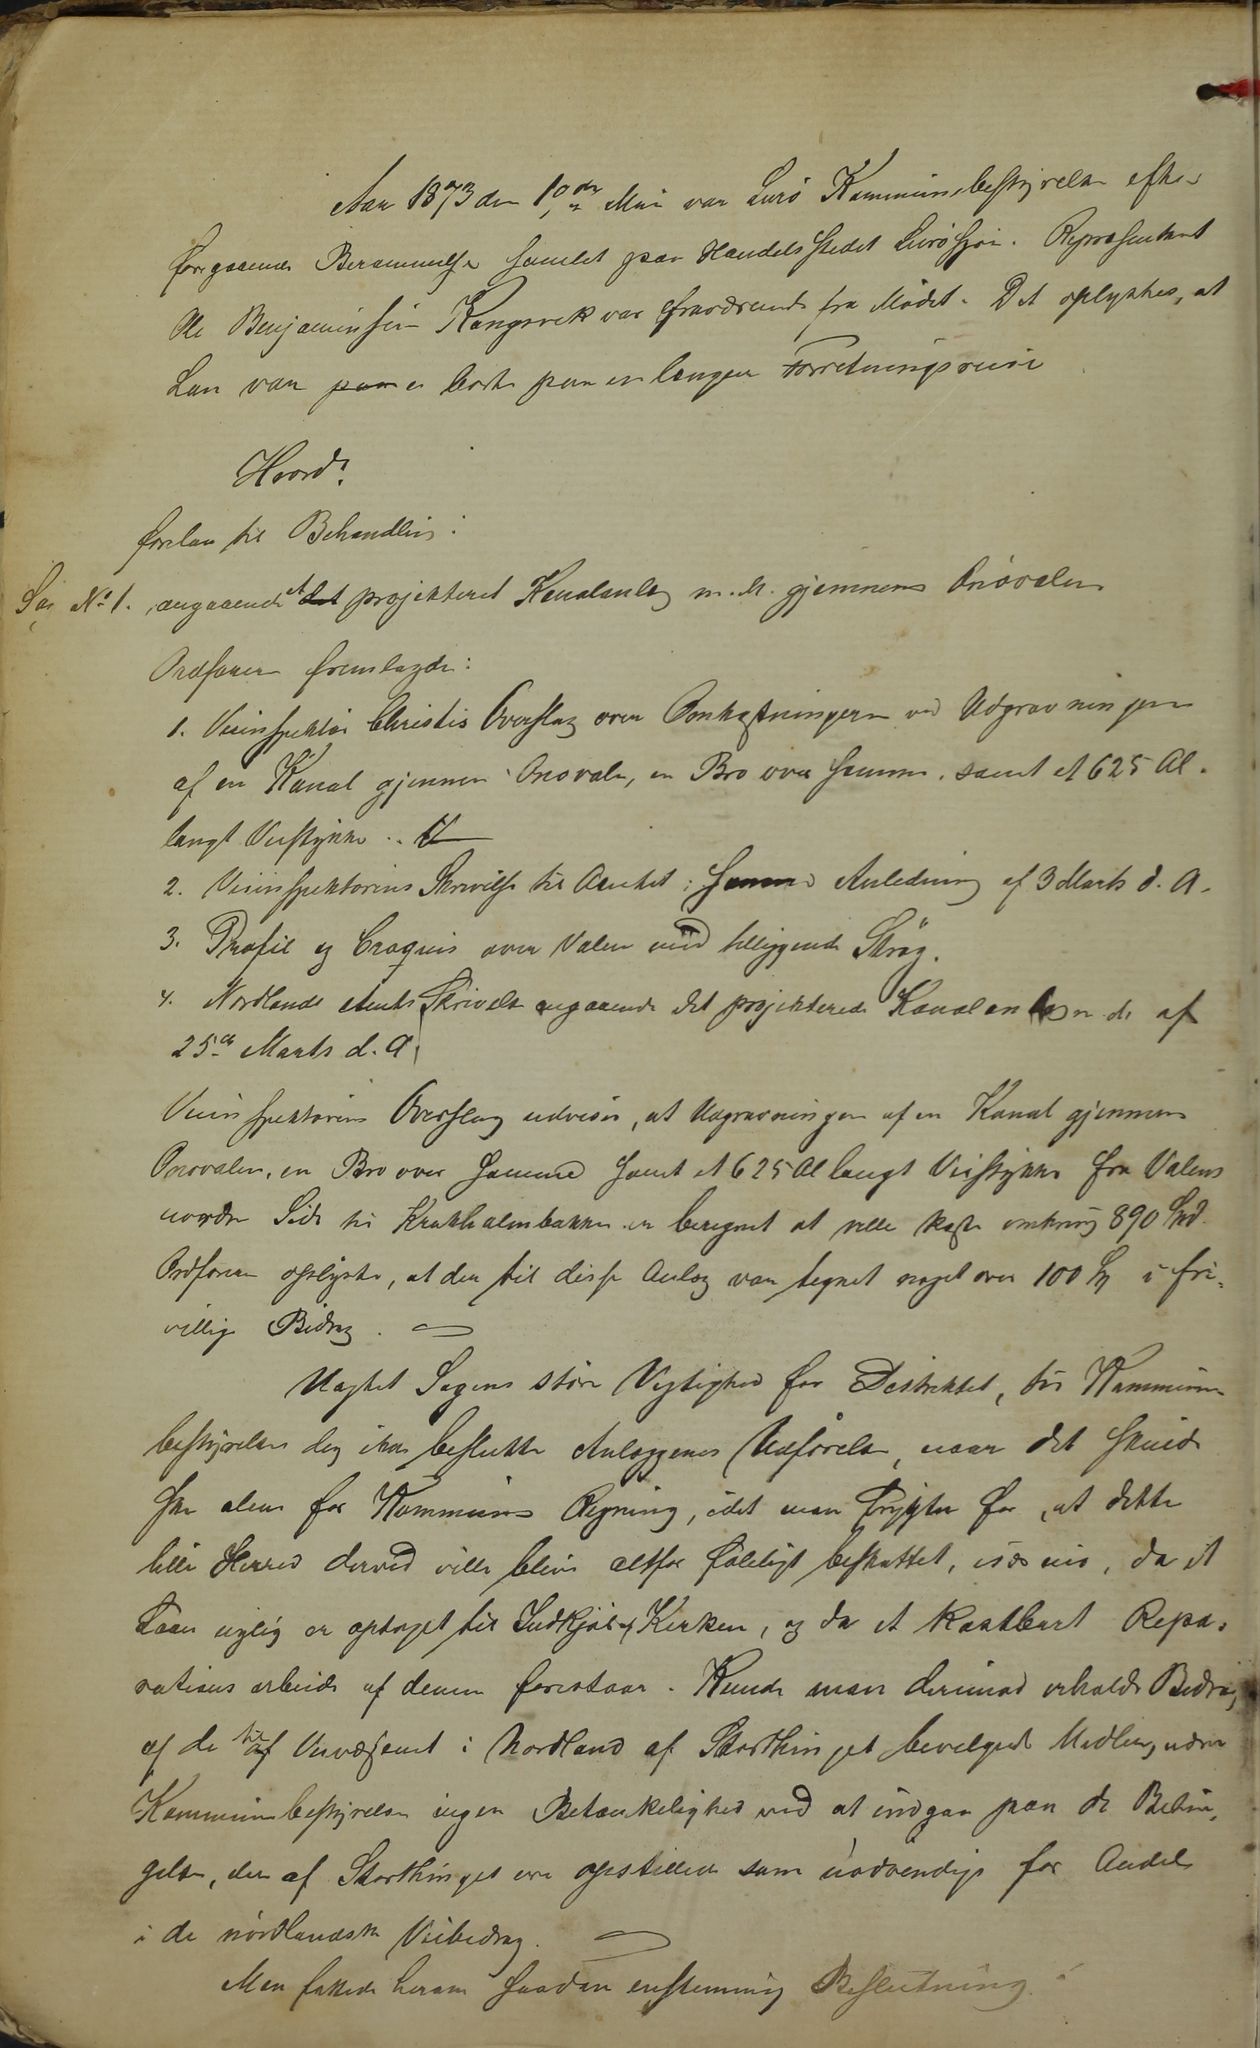 Aar 1873 den 10de Mai var Lurø Kommunebestyrelse efter
foregaaende Berammelse samlet paa Handelsstedet Lurøgaard. Repræsentant
Ole Benjaminsen Kongsvik var fraværende fra Mødet. Det oplystes, at
han var paa e borte paa en længere Forretningsreise
Hvorda:
forelaa til Behandling:
Sag No 1. angaaende et det projekteret Kanalanlæg m. M. gjennem Onøvalen
Ordføreren fremlagde:
1. Veiinspektør Christies Overslag over Omkostningerne ved Udgravningen
af en Kanal gjennem Onøvalen, en Bro over samme, samt et 625 Al.
langt Veistykke.
2. Veiinspektørens Skrivelse til Amtet i samme Anledning af 3 Marts d. A.
3. Profil og Croquis over Valen med tilliggende Strøg.
4. Nordlands Amts Skrivelse angaaende det projekterede Kanalanlæg m. m. af
25de Marts d. A.
Veiinspektørens Overslag udviser, at Udgravningen af en Kanal gjennem
Onøvalen, en Bro over samme samt et 625 Al langt Veistykke fra Valens
nordre Side til Krakhalmbakken er beregnet at ville koste omkring 890 Spd.
Ordføreren oplyste, at der til disse Anlæg var tegnet noget over 100 Spd i fri-
villige Bidrag.
Uagtet Sagens store Vigtighed for Distriktet, tør Kommune
bestyrelsen dog ikke beslutte Anlæggenes Udførelse, naar det skulde
ske alene for Kommunens Regning, idet man frygter for, at dette
lille Herred derved ville blive altfor føleligt beskattet, især nu, da et
Laan nylig er optaget til Indkjøb af Kirken, og da et kostbart Repa-
rations arbeide af denne forestaar. Kunde man derimod erholde Bidrag
af de til af Veivæsenet i Nordland af Storthinget bevilgede Midler, nærer
Kommunebestyrelsen ingen Betænkelighed ved at indgaa paa de Betin-
gelser, der af Storthinget ere opstillede som nødvendige for Andel
i de nordlandske Veibidrag.
Man fattede herom saadan enstemmig Beslutning: